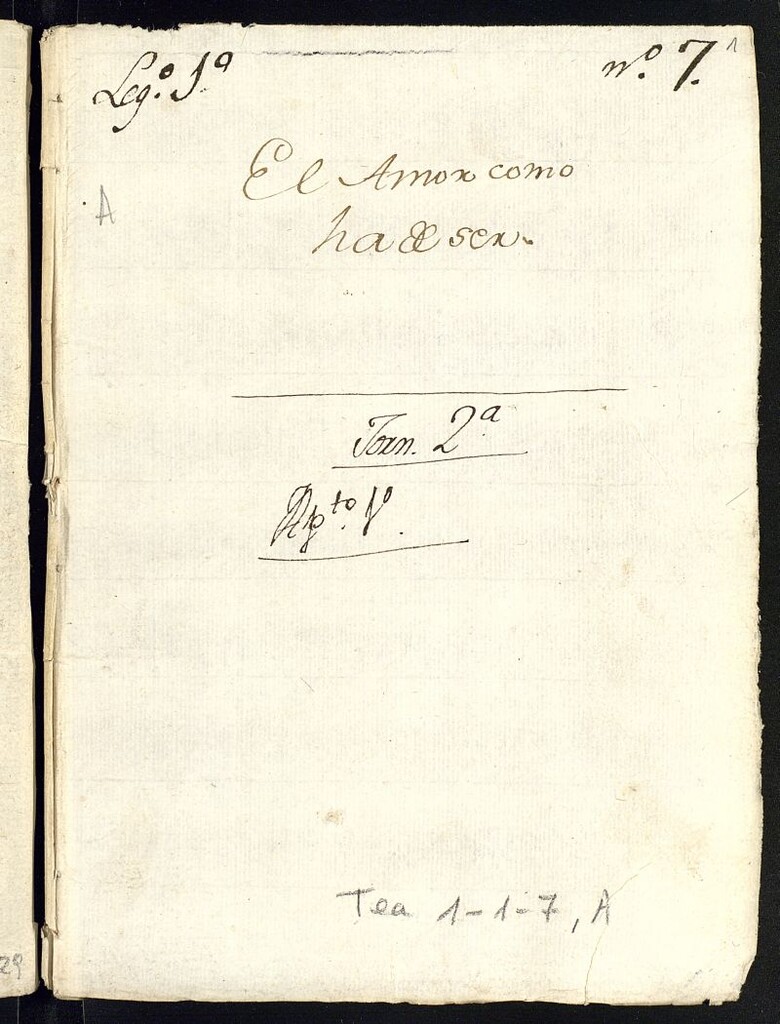 Leg.º 1º nº. 7. 1
El Amor como
A
ha de ser.
Jorn. 2ª
Apto. 1º
Tea 1-1-7, A
29